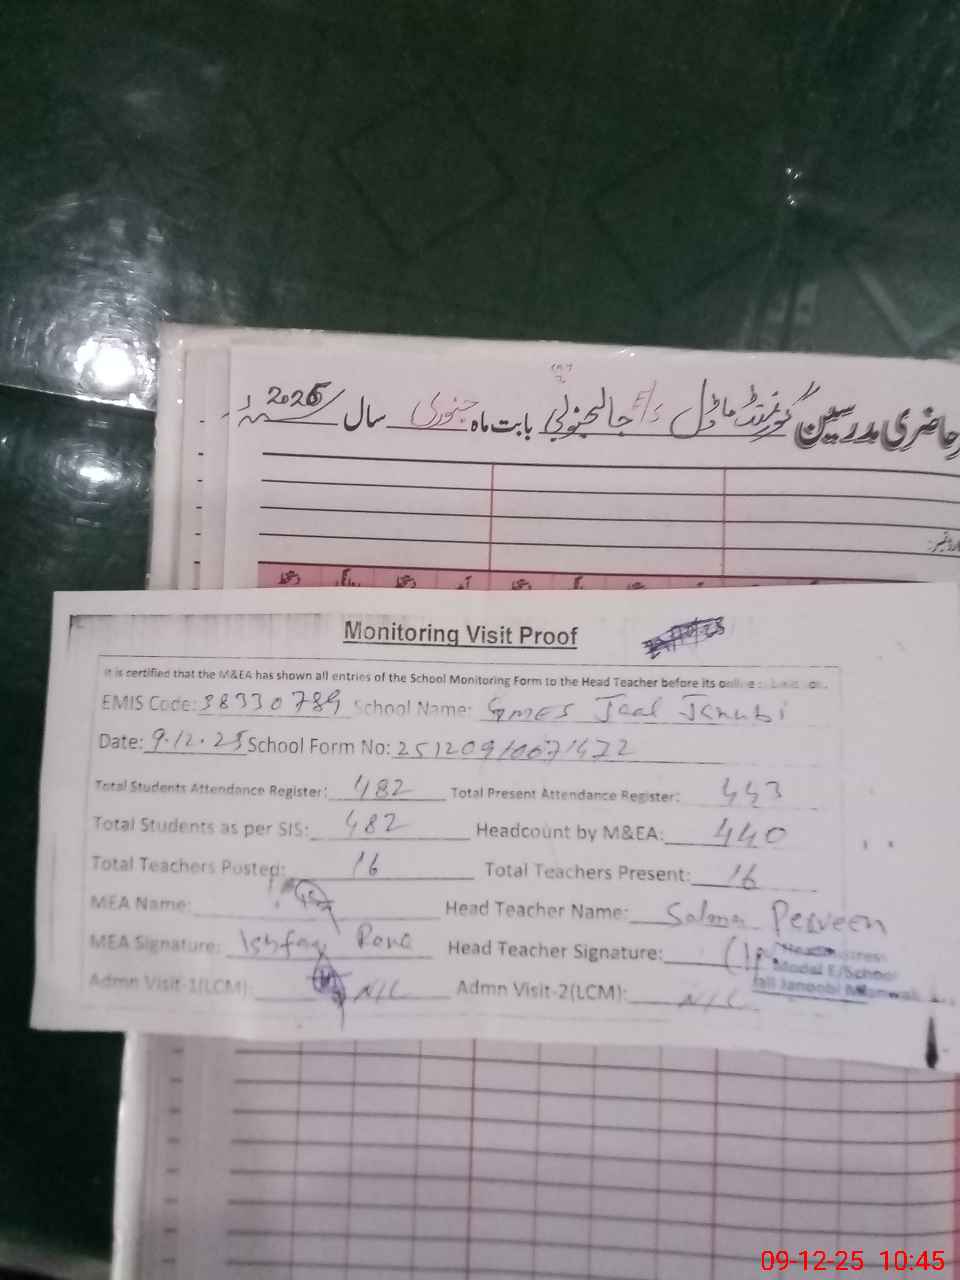 حاضری مدرسین گورنمنٹ ماڈل جال جنوبی بابت ماہ جنوری سال 2026
Monitoring Visit Proof
It is certified that the M&EA has shown all entries of the School Monitoring Form to the Head Teacher before its online
EMIS Code: 38330789 School Name: GMES Jaal Janubi
Date: 9.12.25 School Form No: 25120910071472
Total Students Attendance Register: 482 Total Present Attendance Register: 443
Total Students as per SIS: 482 Headcount by M&EA: 440
Total Teachers Posted: 16 Total Teachers Present: 16
MEA Name: Head Teacher Name: Salma Perveen
MEA Signature: Ishfaq Head Teacher Signature:
Modal E/School
Admn Visit-1(LCM): NIL Admn Visit-2(LCM): NIL
Janoobi
09-12-25 10:45